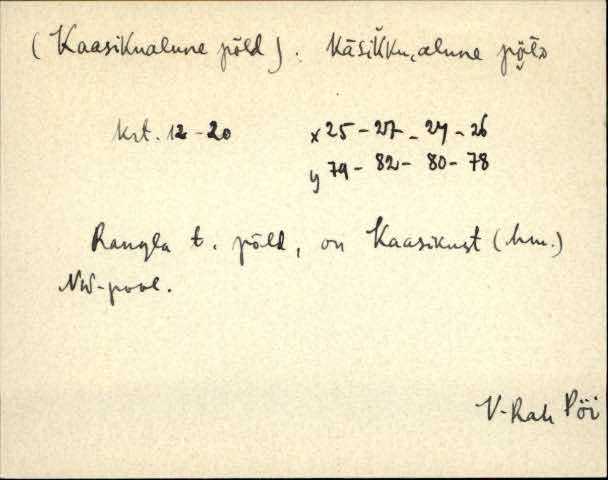 (Kaasikualune põld). kāsiK̆ku‿alune põlᴅ
krt. 12-20 x 25 - 27 - 27 - 26
y 79 - 82 - 80 - 78
Rangla t. põld, on Kaasikust (hm.)
NW-pool.
V-Rah Pöi